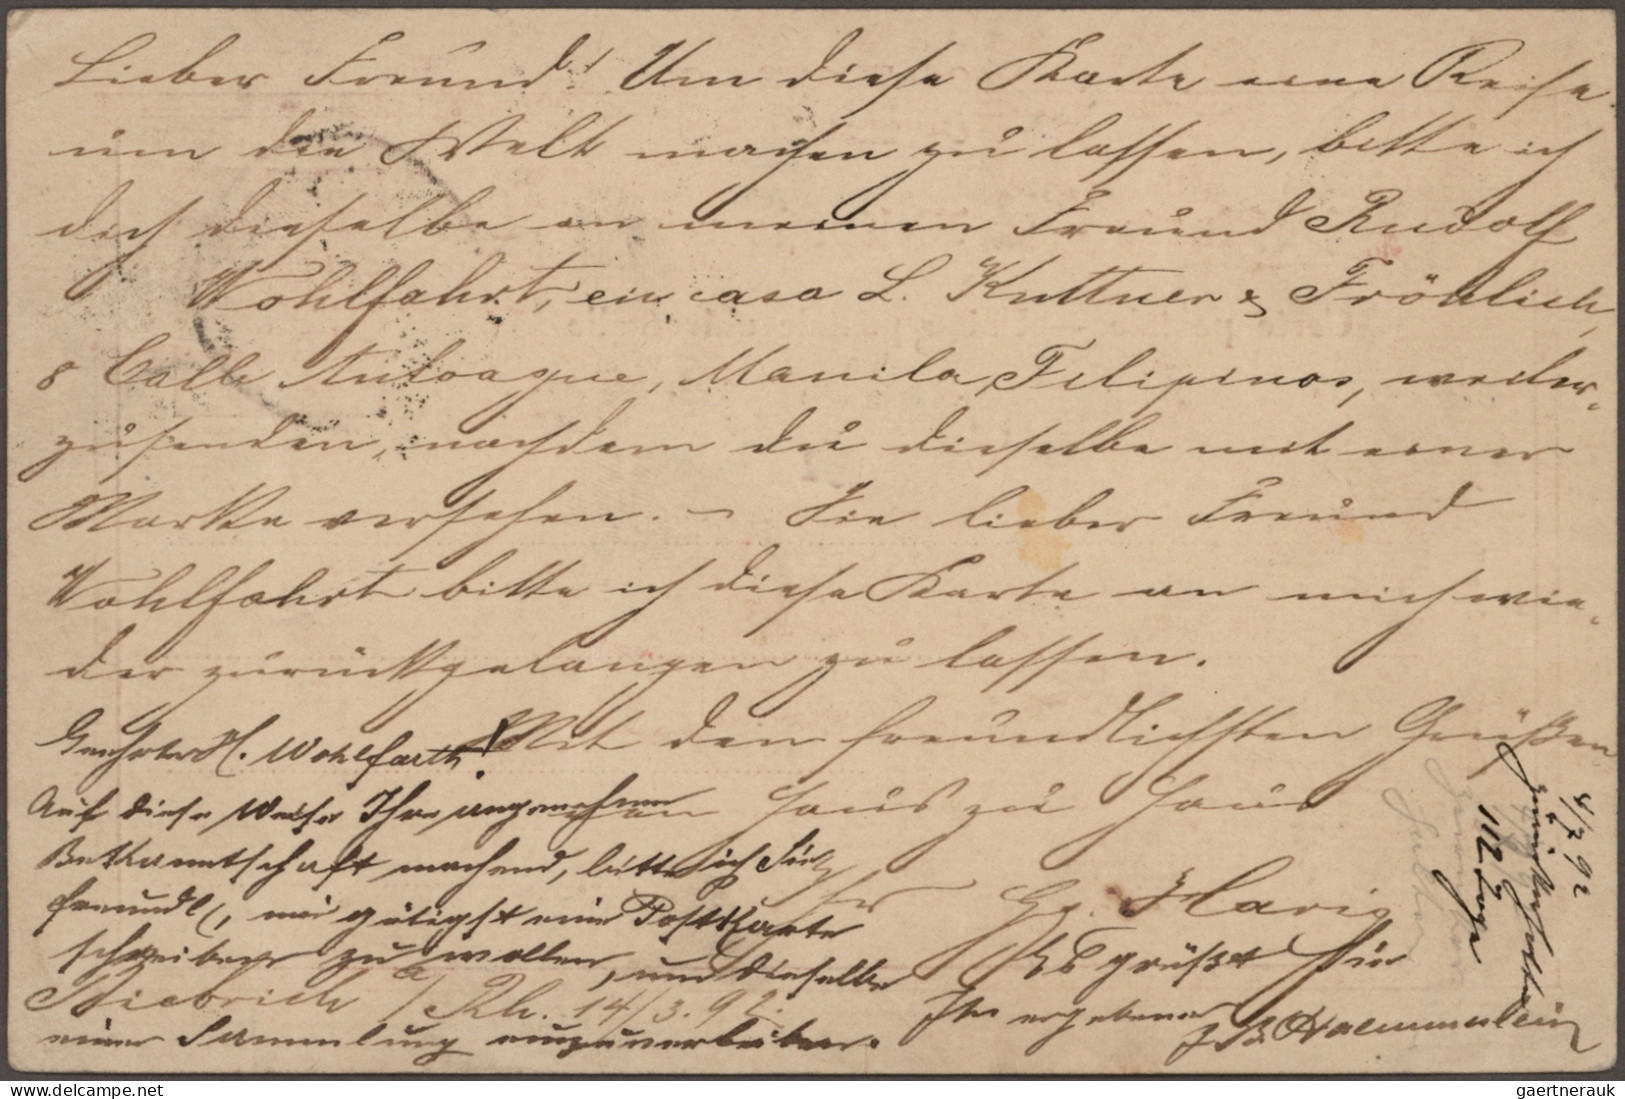 Lieber Freund! Um diese Karte eine Reise
um die Welt machen zu lassen, bitte ich
dich dieselbe an meinen Freund Rudolf
Wohlfahrt, en casa L. Kuttner & Fröhlich,
8 Calle Anloague, Manila, Filipinas, weiter-
zusenden, nachdem du dieselbe mit einer
Marke versehen. – Sie lieber Freund
Wohlfahrt bitte ich diese Karte an mich wie-
der zurückgelangen zu lassen.
Mit den freundlichsten Grüßen
von Haus zu Haus
Ihr
Hg. Flavig
Biebrich a/Rh. 14/3. 92.
Geehrter H. Wohlfarth!
Auf diese Weise Ihre angenehme
Bekanntschaft machend, bitte ich Sie
freundl., mir gütigst eine Postkarte
schreiben zu wollen, um dieselbe
einer Sammlung einzuverleiben.
Es grüßt Sie
Ihr ergebener
J. B. Haemmerlein
4/7 92
112 Tage
gaertnerauk